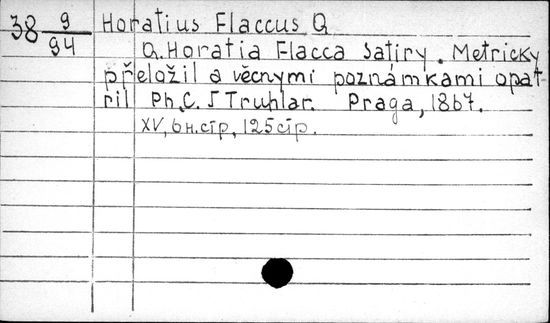 38 9/94 Horatius Flaccus Q
Q. Horatia Flacca Satiry. Metricky
přeložil a věcnymi poznámkami opat-
ril Ph. C. J Truhlar. Praga, 1867.
XV, 6 н. стр, 125 стр.